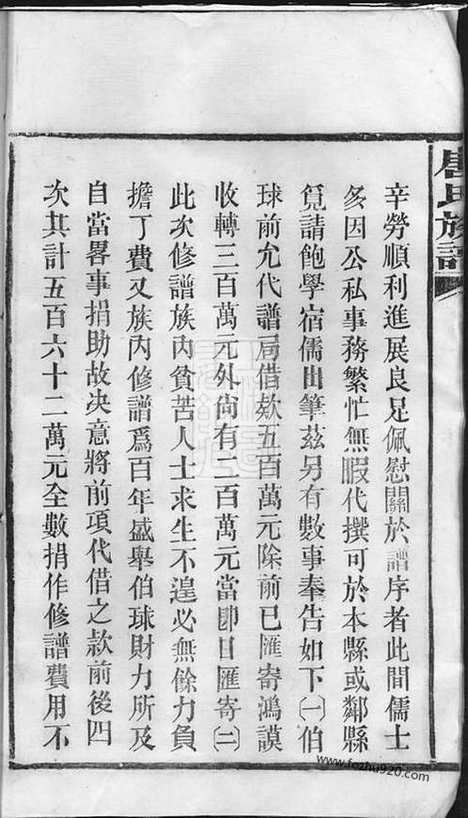 唐氏族譜
辛勞順利進展良足佩慰關於譜序者此間儒士
多因公私事務繁忙無暇代撰可於本縣或鄰縣
覓請飽學宿儒出筆茲另有數事奉告如下㈠伯
球前允代譜局借欵五百萬元除前已匯寄鴻謨
收轉三百萬元外尙有二百萬元當卽日匯寄㈡
此次修譜族內貧苦人士求生不遑必無餘力負
擔丁費又族內修譜爲百年盛舉伯球財力所及
自當畧事捐助故决意將前項代借之款前後四
次其計五百六十二萬元全數捐作修譜費用不
www.fozhu920.com